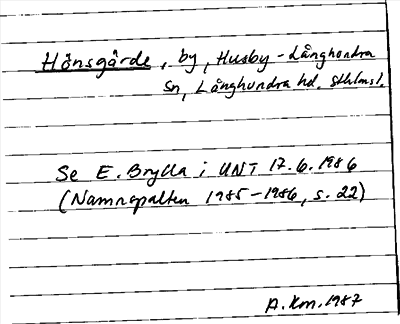 Hönsgärde, by, Husby-Långhundra
Sn, Långhundra hd. Sthlms l.
Se E. Brylla i UNT 17.6.1986
(Namnspalten 1985-1986, s. 22)
A.Km.1987